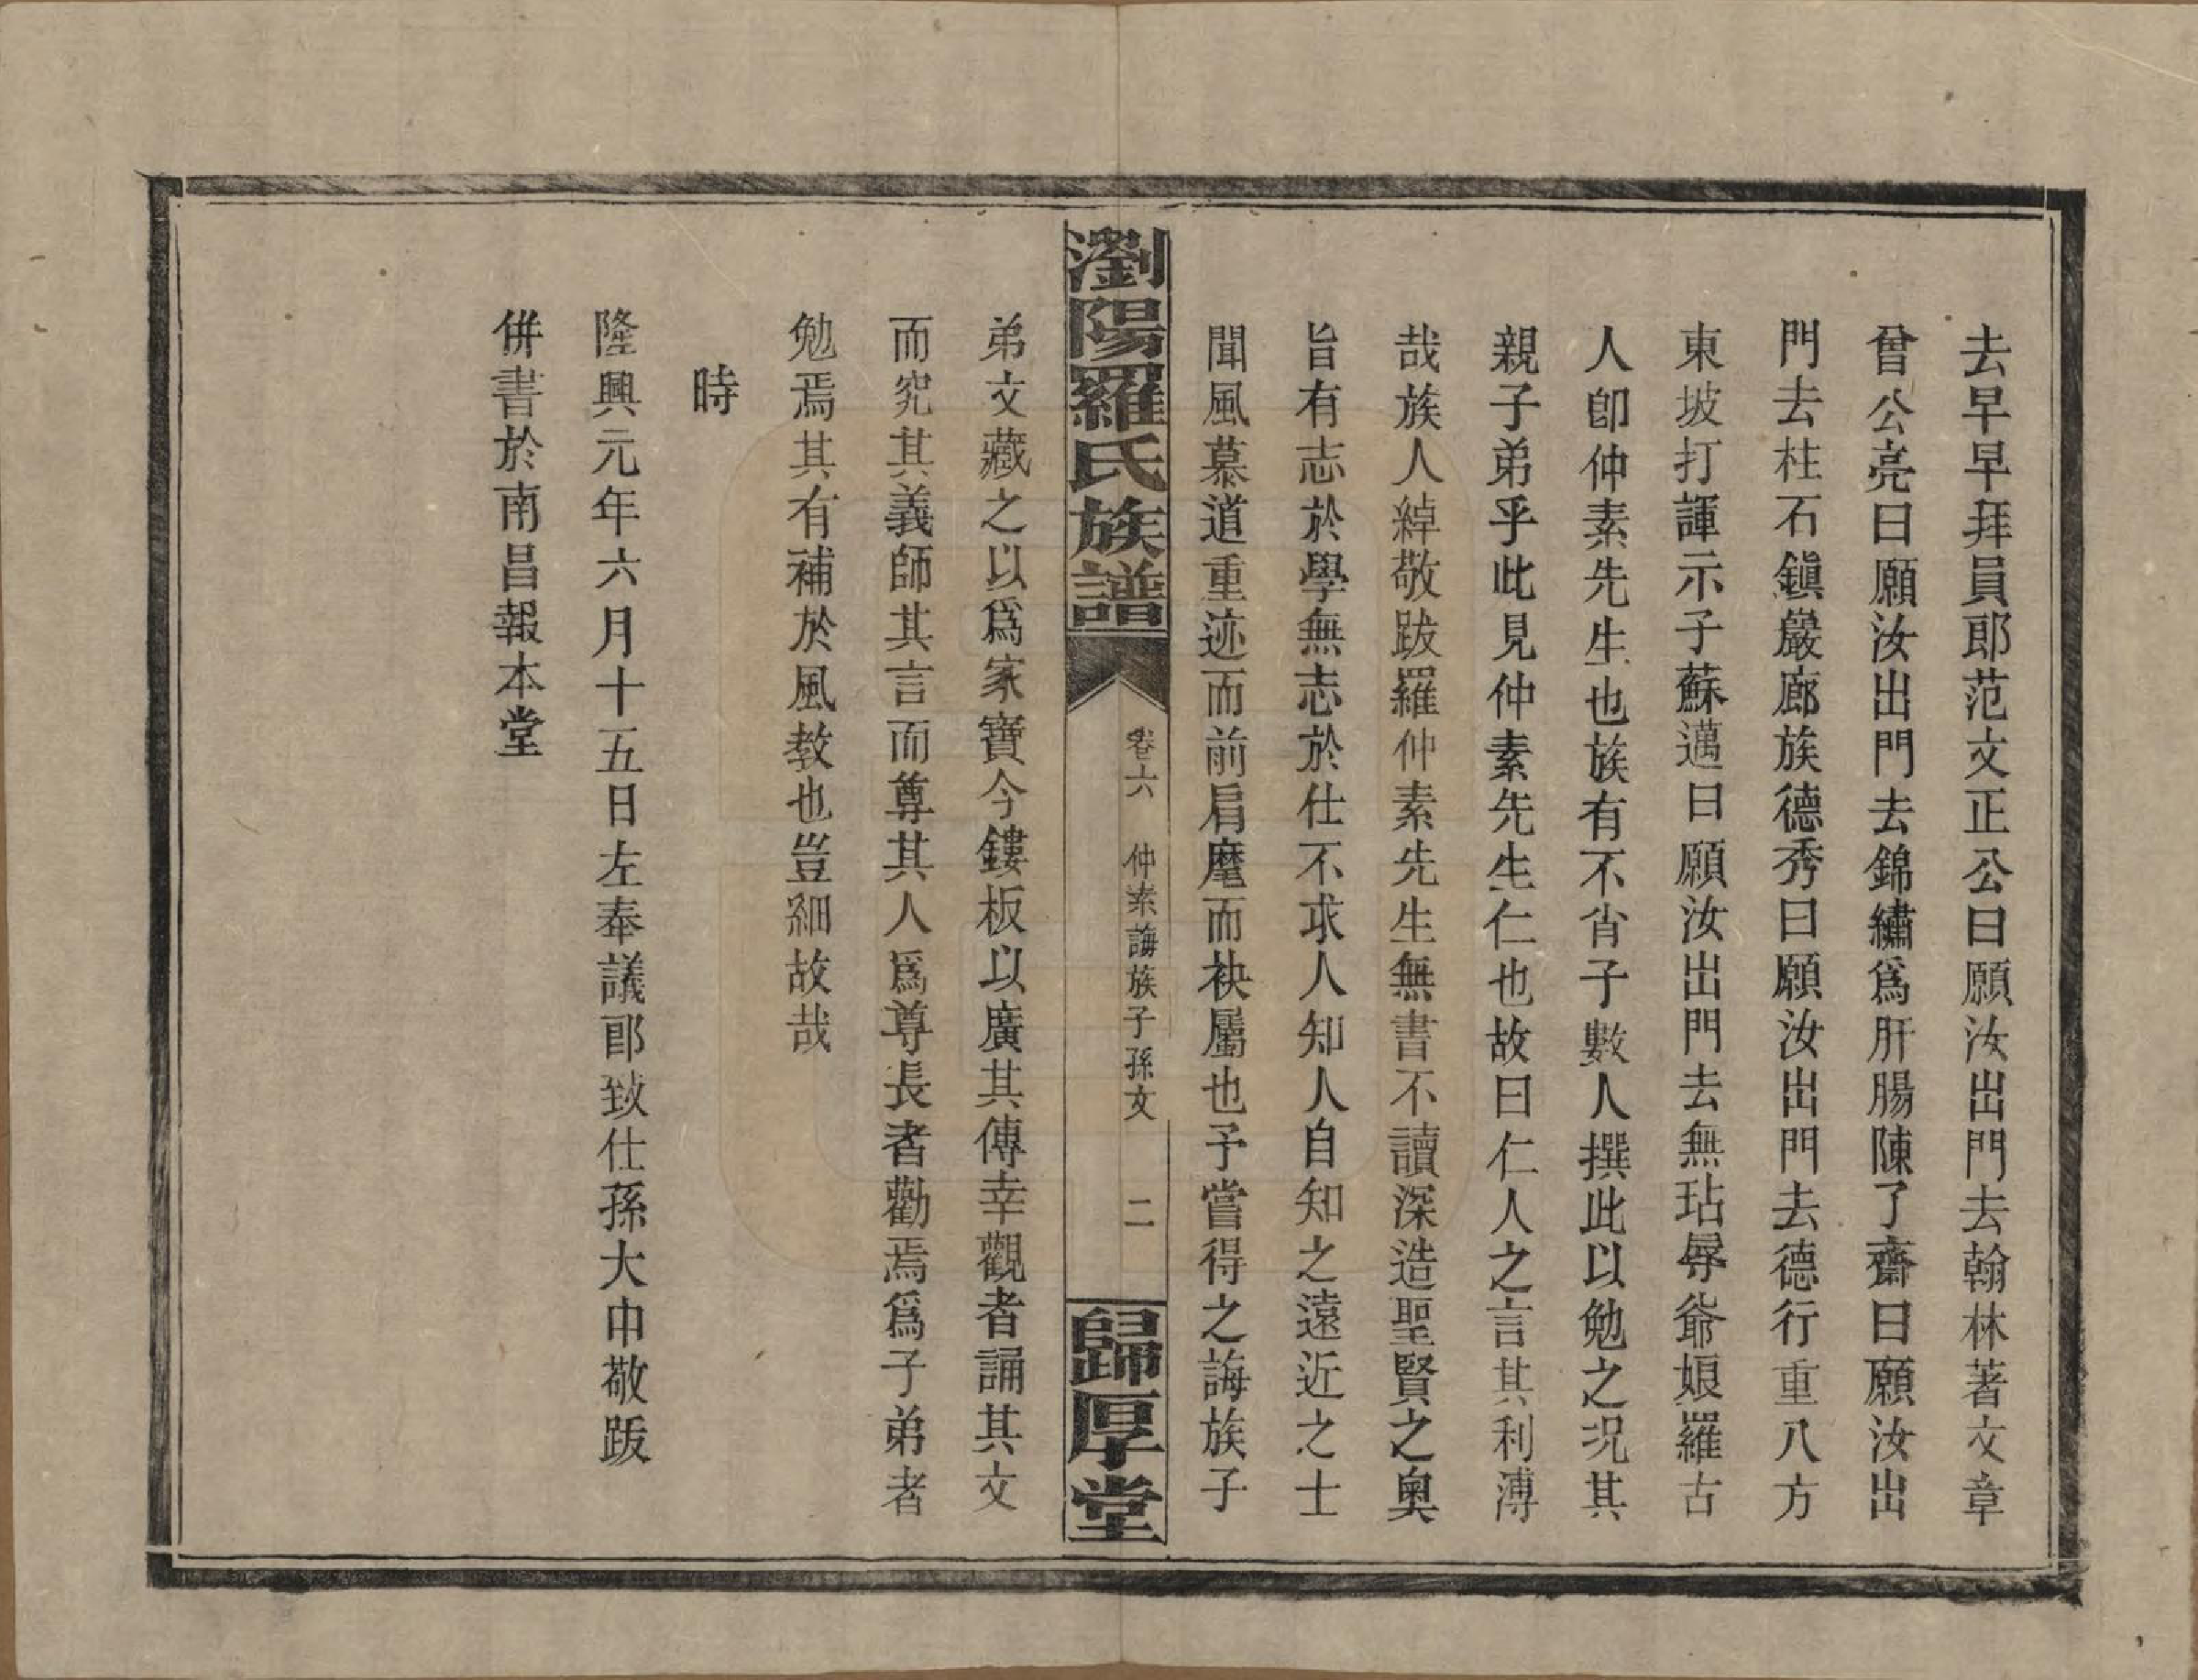 去早早拜員郎范文正公曰願汝出門去翰林著文章
曾公亮曰願汝出門去錦繡爲肝腸陳了齋曰願汝出
門去柱石鎭巖廊族德秀曰願汝出門去德行重八方
東坡打諢示子蘇邁曰願汝出門去無玷辱爺娘羅古
人卽仲素先生也族有不肖子數人撰此以勉之況其
親子弟乎此見仲素先生仁也故曰仁人之言其利溥
哉族人綽敬跋羅仲素先生無書不讀深造聖賢之奧
旨有志於學無志於仕不求人知人自知之遠近之士
聞風慕道重迹而前肩麾而袂屬也予嘗得之誨族子
瀏陽羅氏族譜
卷六 仲素誨族子孫文 二
歸厚堂
弟文藏之以爲家寶今鏤板以廣其傳幸觀者誦其文
而究其義師其言而尊其人爲尊長者勸焉爲子弟者
勉焉其有補於風教也豈細故哉
時
隆興元年六月十五日左奉議郎致仕孫大中敬跋
併書於南昌報本堂